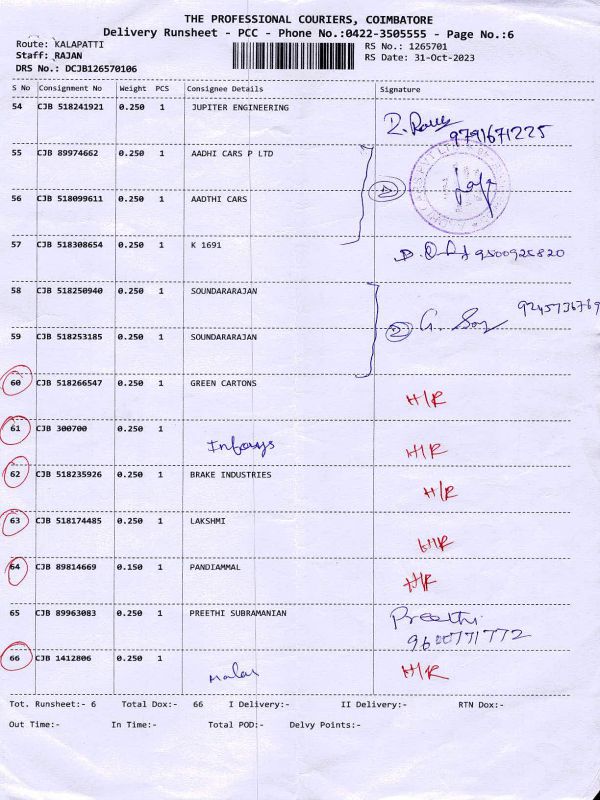 THE PROFESSIONAL COURIERS, COIMBATORE
Delivery Runsheet - PCC - Phone No.:0422-3505555 - Page No.:6
Route: KALAPATTI RS No.: 1265701
Staff: RAJAN RS Date: 31-Oct-2023
DRS No.: DCJB126570106
S No Consignment No Weight PCS Consignee Details Signature
54 CJB 518241921 0.250 1 JUPITER ENGINEERING
9791671225
55 CJB 89974662 0.250 1 AADHI CARS P LTD
56 CJB 518099611 0.250 1 AADTHI CARS
57 CJB 518308654 0.250 1 K 1691 9500925820
58 CJB 518250940 0.250 1 SOUNDARARAJAN
9245736769
59 CJB 518253185 0.250 1 SOUNDARARAJAN
60 CJB 518266547 0.250 1 GREEN CARTONS H/R
61 CJB 300700 0.250 1 Infosys H/R
62 CJB 518235926 0.250 1 BRAKE INDUSTRIES H/R
63 CJB 518174485 0.250 1 LAKSHMI H/R
64 CJB 89814669 0.150 1 PANDIAMMAL H/R
65 CJB 89963083 0.250 1 PREETHI SUBRAMANIAN Preethi.
9600771772
66 CJB 1412806 0.250 1 Malar H/R
Tot. Runsheet:- 6 Total Dox:- 66 I Delivery:- II Delivery:- RTN Dox:-
Out Time:- In Time:- Total POD:- Delvy Points:-